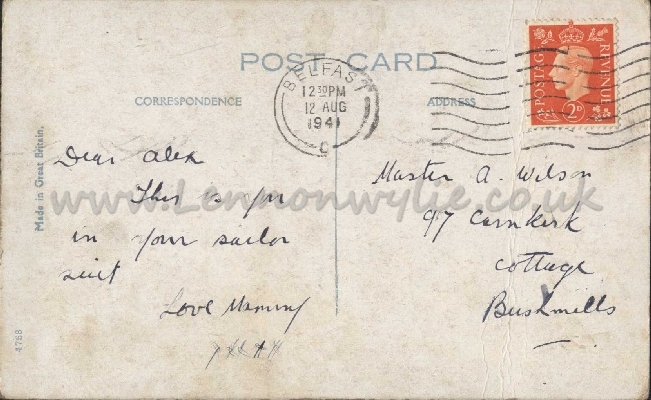 POST CARD
CORRESPONDENCE
ADDRESS
BELFAST
12 30 PM
12 AUG
1941
C
POSTAGE
REVENUE
2D
Made in Great Britain.
4768
Dear Alex
This is you
in your sailor
suit
Love Mammy
xxxx
Master A. Wilson
97 Carnkirk
Cottage
Bushmills
www.Lennonwylie.co.uk